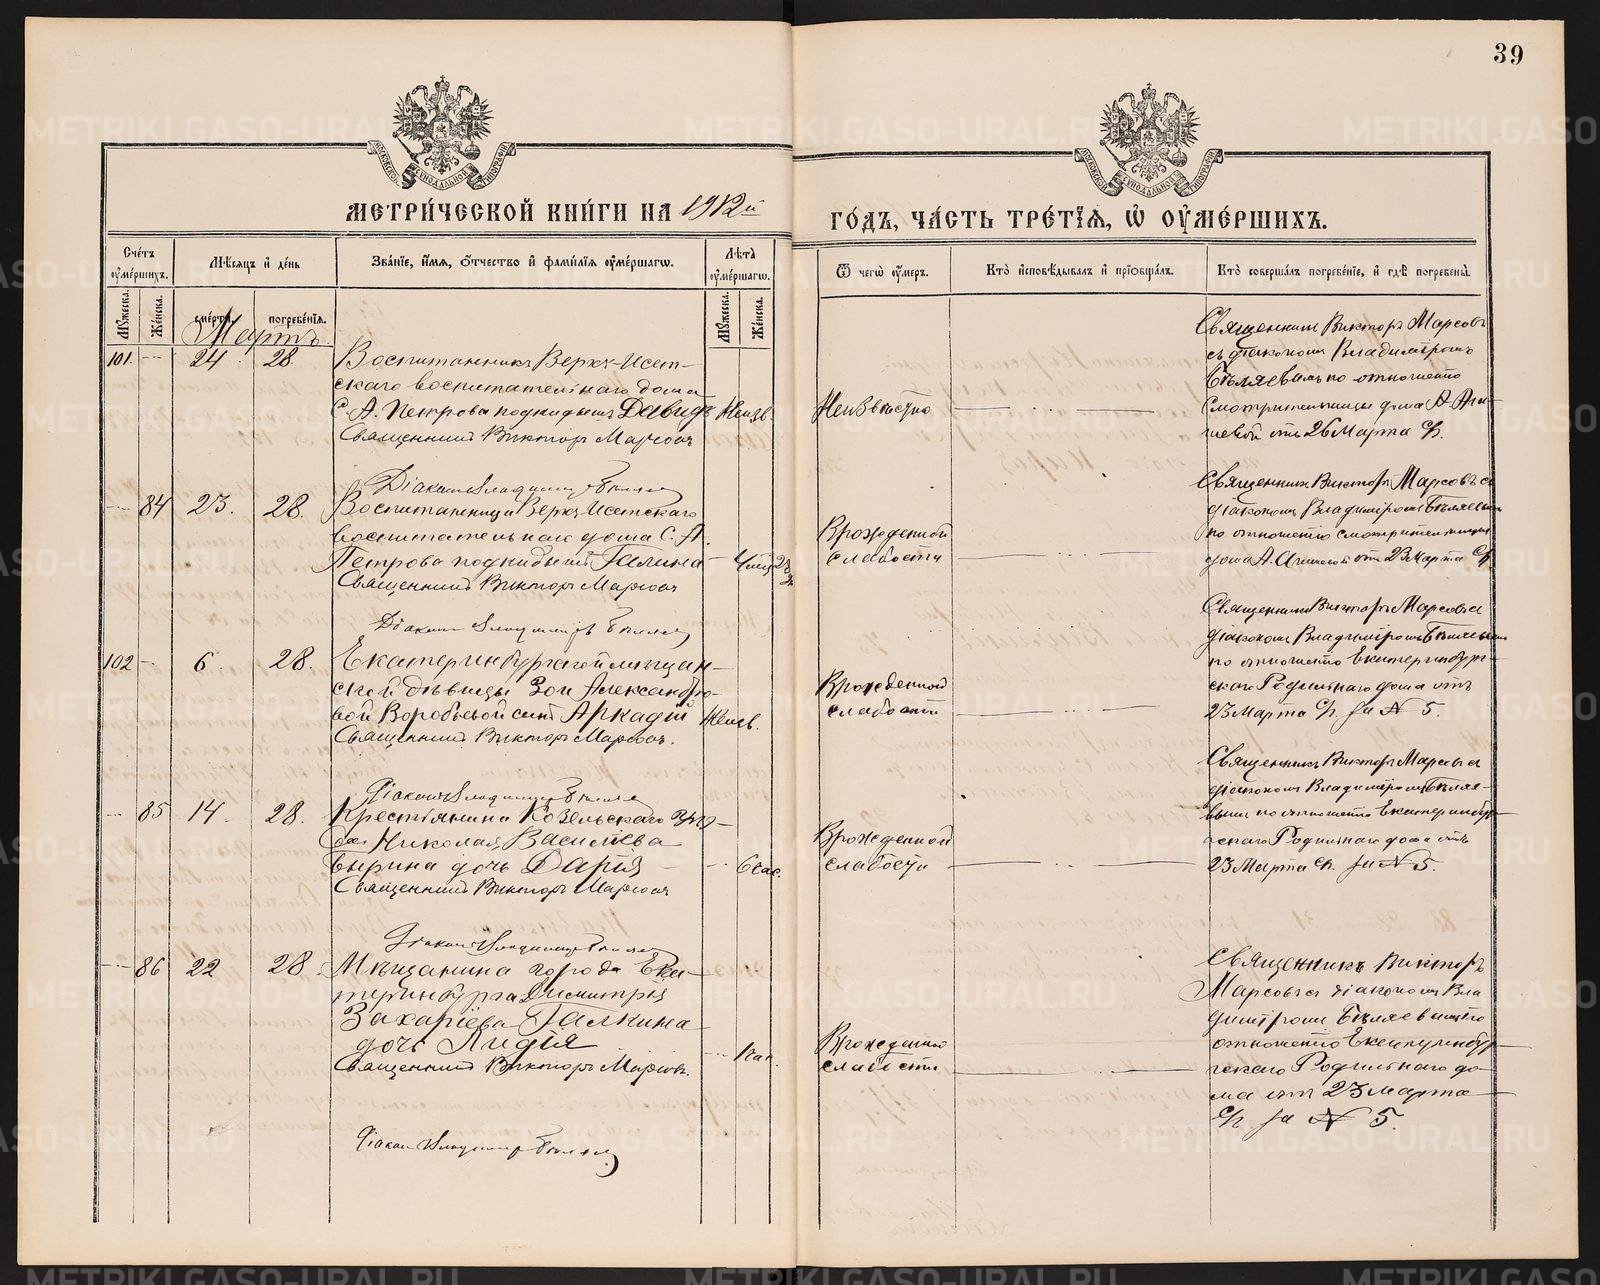 39
МОСКОВСКОЙ СѴНОДАЛЬНОЙ ТИПОГРАФІИ
МОСКОВСКОЙ СѴНОДАЛЬНОЙ ТИПОГРАФІИ
МЕТРИ́ЧЕСКОЙ КНИ́ГИ НА 1912й
ГО́ДЪ, ЧА́СТЬ ТРЕ́ТЇѦ, Ѡ҆ ОУ҆МЕ́РШИХЪ.
Сче́тъ оу҆ме́ршихъ.
Мѣ́сѧцъ и҆ де́нь
Зва́нїе, и҆́мѧ, ѻ҆́тчество и҆ фами́лїѧ оу҆ме́ршагѡ.
Лѣ́та оу҆ме́ршагѡ.
Ѿ чегѡ̀ оу҆́меръ.
Кто̀ и҆сповѣ́дывалъ и҆ прїѡбща́лъ.
Кто̀ соверша́лъ погребе́нїе, и҆ гдѣ̀ погребены̀.
Мꙋ́жеска.
Же́нска.
сме́рти.
погребе́нїѧ.
Мꙋ́жеска.
Же́нска.
Мартъ.
101. 24 28
Воспитанникъ Верхъ-Исет-
скаго воспитательнаго дома
С. А. Петрова подкидышъ Давидъ Неизв.
Священникъ Викторъ Марсовъ
Діаконъ Владимиръ Бѣляев
Неизвѣстно
Священникъ Викторъ Марсовъ
съ діакономъ Владимiромъ
Бѣляевымъ по отношенiю
Смотрительницы дома А.
шевой отъ 26 Марта с/г.
84 23. 28.
Воспитанница Верхъ-Исетскаго
воспитательнаго дома С. А.
Петрова подкидышъ Галина
Священникъ Викторъ Марсовъ
Діаконъ Владимиръ Бѣляев
Врожденной
слабости
Священникъ Викторъ Марсовъ съ
діакономъ Владимiромъ Бѣляевымъ
по отношенію смотрительницы
дома А. отъ 23 Марта с/г
102 6. 28.
Екатеринбургской мѣщан-
ской дѣвицы Зои Александро-
вой Воробьевой сынъ Аркадій Неизв.
Священникъ Викторъ Марсовъ.
Діаконъ Владимиръ Бѣляев
Врожденной
слабости
Священникъ Викторъ Марсовъ съ
діакономъ Владимiромъ Бѣляевымъ
по отношенію Екатеринбург-
скаго Родильнаго дома отъ
23 Марта с/г. за № 5.
85 14. 28.
Крестьянина Козельскаго уѣз-
да Николая Васильева
Бырина дочь Дарія 6 час.
Священникъ Викторъ Марсовъ
Діаконъ Владимиръ Бѣляев
Врожденной
слабости
Священникъ Викторъ Марсовъ съ
діакономъ Владимiромъ Бѣляе-
вымъ по отношенію Екатеринбур-
гскаго Родильнаго дома отъ
23 Марта с/г. за № 5.
86 22 28.
Мѣщанина города Ека-
теринбурга Димитрія
Захаріева Галкина
дочь Лидія
Священникъ Викторъ Марсовъ.
Діаконъ Владимиръ Бѣляев
Врожденной
слабости
Священникъ Викторъ
Марсовъ съ діакономъ Вла
димiромъ Бѣляевымъ по
отношенію Екатеринбур-
гскаго Родильнаго до-
ма отъ 23 Марта
с/г. за № 5.
METRIKI.GASO-URAL.RU